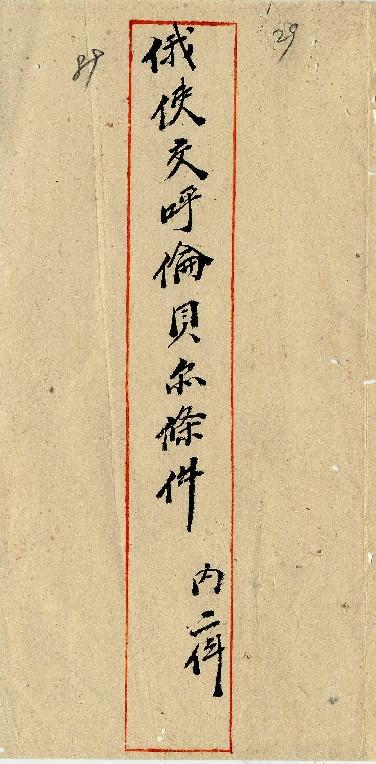 29
俄使交呼倫貝尔條件
内二件